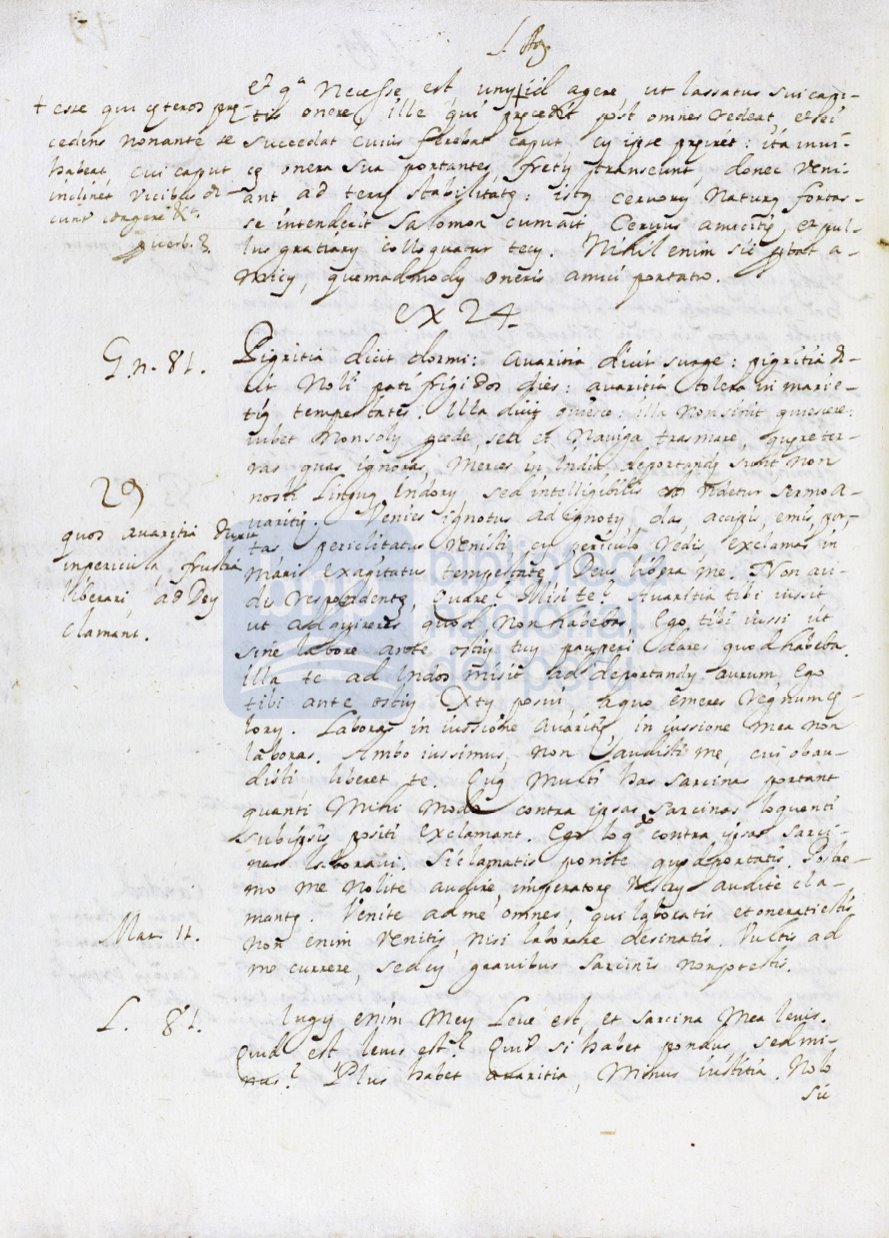 et qa necesse est unu id agere ut lassatus sui capi-
tis onere, ille qui precedit post omnes redeat, et ei
succedat cuius ferebat caput cu ipse preiret: ita invi-
ce onera sua portantes, fretu transeunt, donec veni-
ant ad terre stabilitate: istu cervoru natura fortas-
se intenderit Salomon cum ait Cervus amicitie, et pul-
lus gratiaru colloquatur tecu. Nihil enim sic probat a-
micu, quemadmodu oneris amici portatio.
+ esse qui ceteros pre-
cedens non ante se
habeat, cui caput
inclinet vicibus di-
cunt
Prverb.
ex 24
G. n. 81.
Pigritia dicit dormi: avaritia dicit surge: pigritia di-
cit noli pati frigidos dies: avaritia tolera in mari e-
tia tempestates. Illa dicit quiesce: illa non sinit quiescere:
iubet non solu procede, sed et naviga trasmare, quere ter-
ras quas ignoras, merces in Indie deportande sunt non
nosti lingua Indoru, sed intelligibilis videtur sermo a-
varitie. Venies ignotus ad ignotu, das, accipis, emis, por-
tas periclitatus venisti, cu periculo redis, exclamas in
maris exagitatus tempestate Deus libera me. Non au-
dis respondente, Quare? Misi te? Avaritia tibi iussit
ut adquireres quod non habebas, Ego tibi iussi ut
sine labore ante ostiu tuu pauperi dares quod habebas.
illa te ad Indos misit ad deportandu aurum, Ego
tibi ante ostiu Xtu posui a quo emeres regnum ce-
loru. Laboras in iussione avaritie, in iussione mea non
laboras. Ambo iussimus, non audisti me, cui obau-
disti liberet te. Qua multi has sarcinas portant
quanti mihi modo contra ipsas sarcinas loquenti
sub ipsis positi exclamant. Ego loqr contra ipsas sarci-
nas laboravi. Si clamatis ponite quod portatis. Postre-
mo me nolite audire imperatore vestru audite cla-
mante. Venite ad me omnes qui laboratis et onerati estis
non enim venitis, nisi laborare desinatis. Vultis ad
me currere, sed cu gravibus sarcinis non potestis.
29
quos avaritia
in pericula frustra
liberari, ad Deu
clamant.
Mat. 11.
L. 81.
Iugu enim meu leve est, et sarcina mea levis.
Quid est levis est? Quid si habet pondus, sed mi-
nus? Plus habet avaritia, minus iustitia. Nolo
sic
biblioteca
nacional
del perú